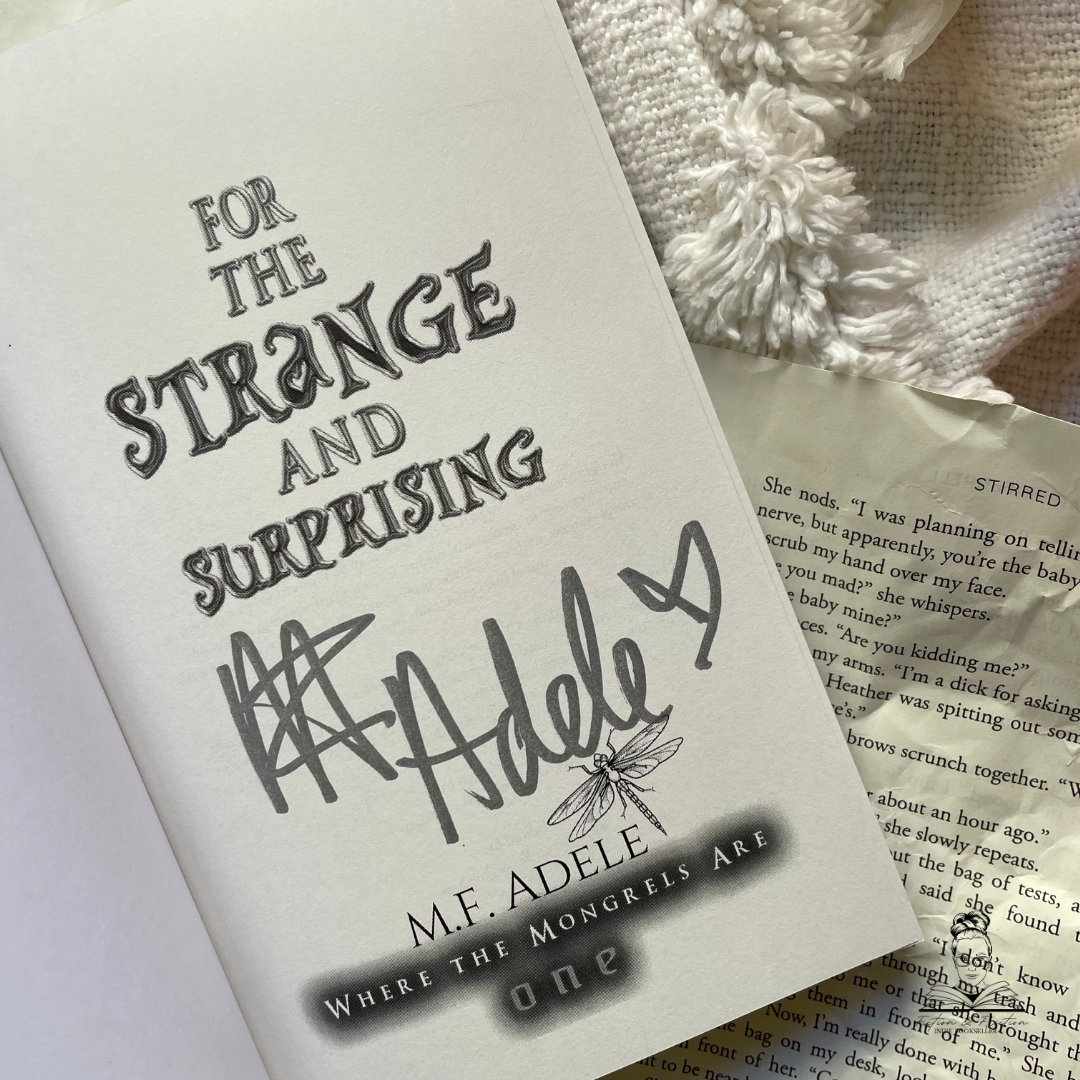 FOR
THE
STRaNGE
AND
SURPRISING
Adele
M.F. ADELE
WHERE THE MONGRELS ARE
one
STIRRED
She nods. “I was planning on
nerve, but apparently, you’re the baby
scrub my hand over my face.
you mad?” she whispers.
baby mine?”
“Are you kidding me?”
my arms. “I’m a dick for asking
Heather was spitting out
brows scrunch together.
about an hour ago.”
she slowly repeats.
the bag of tests,
said she found
“I don’t know
through my trash and
me or that she brought
them in front of me.” She
Now, I’m really done with
bag on my desk,
front of her.
to be
INDIE BOOKSELLER